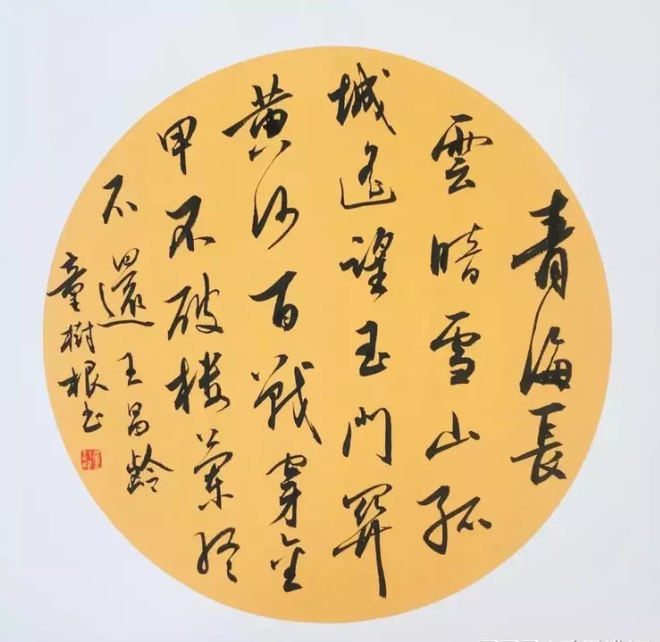 青海長
雲暗雪山孤
城遙望玉門關
黄沙百戰穿金
甲不破楼蘭終
不還 王昌齡
童樹根书